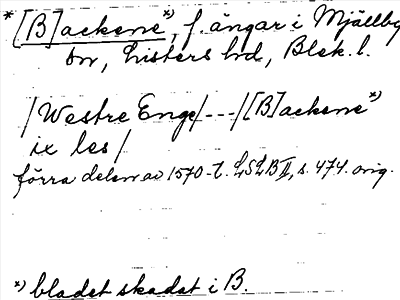 * [B]ackene *), f. ängar i Mjällby
sn, Listers hd, Blek. l.
/Westre Enge/---/[B]ackene *)
ix les/
förra delen av 1570-t. LSLB II, s. 474. orig.
*) bladet skadat i B.